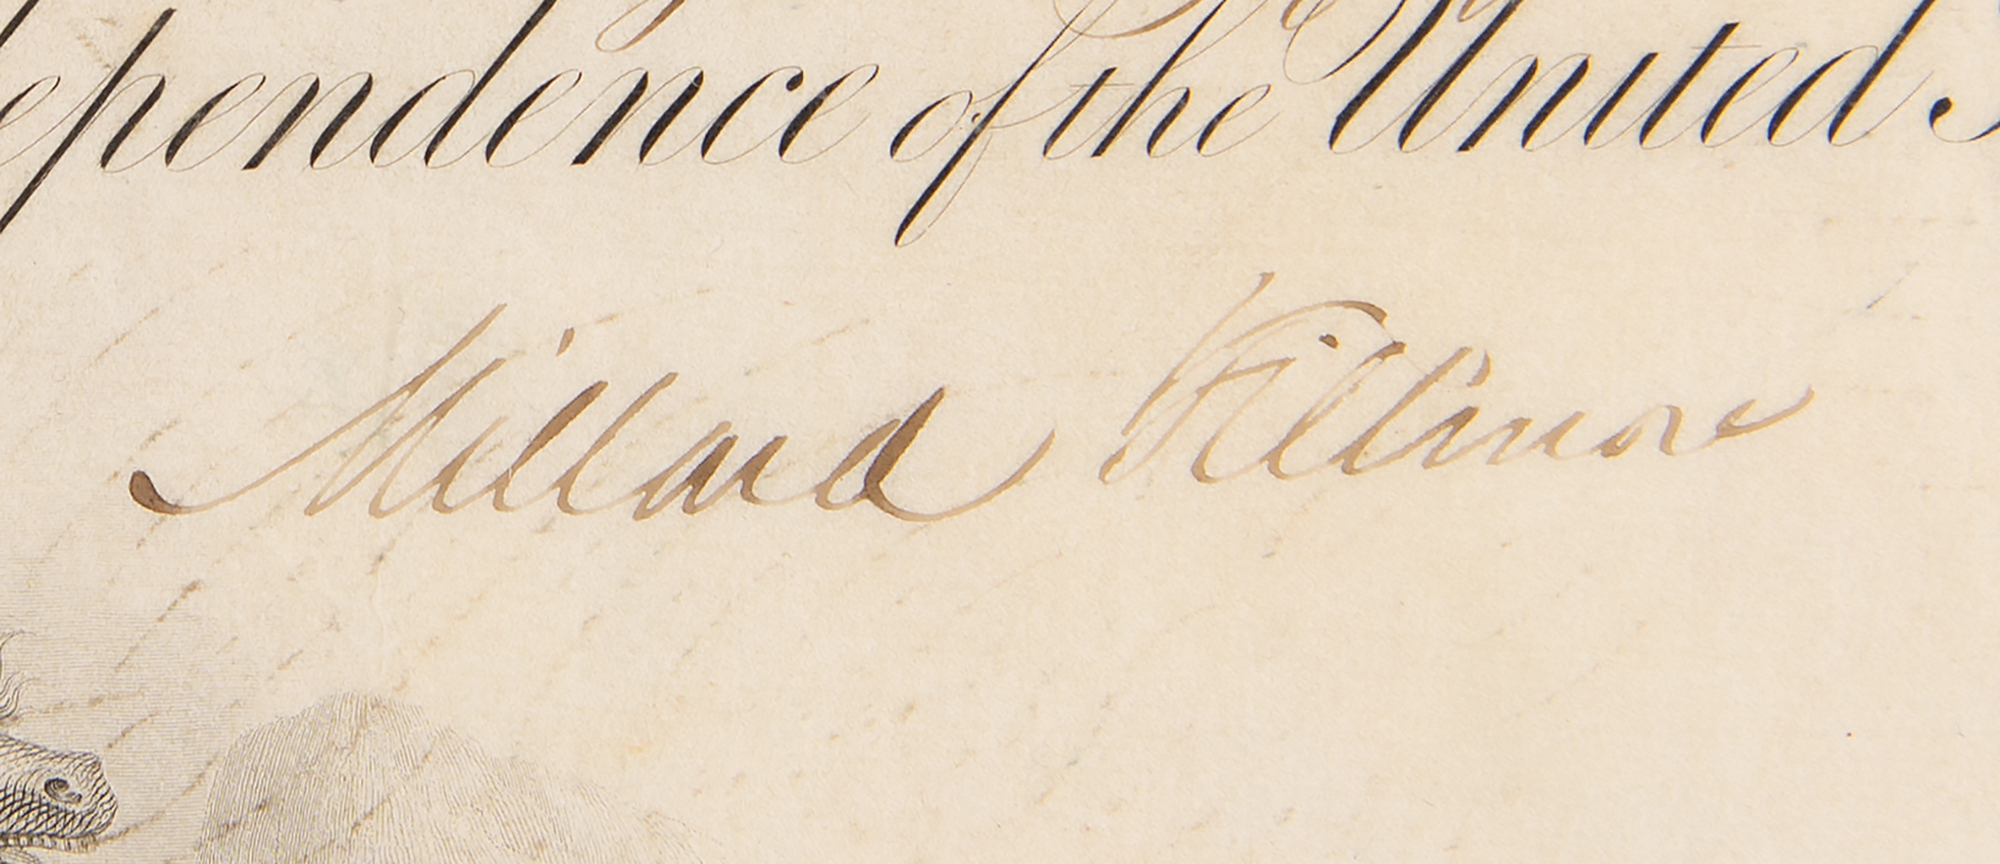 ependence of the United S
Millard Fillmore